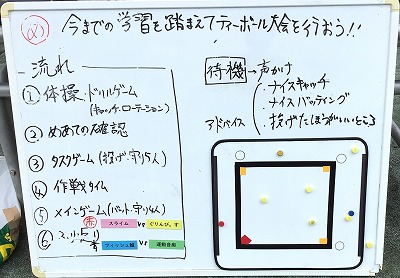 め 今までの学習を踏まえてティーボール大会を行おう!!
流れ
① 体操、ドリルゲーム
(キャッチ、ローテーション)
② めあての確認
③ タスクゲーム (投げ、守り5人)
④ 作戦タイム
⑤ メインゲーム (バット、守り4人)
赤 スライム VS ぐりんぴーす
⑥
フィッシュ組 VS 運動音痴
待機 → 声かけ
・ナイスキャッチ
・ナイスバッティング
アドバイス
・投げたほうがいいところ